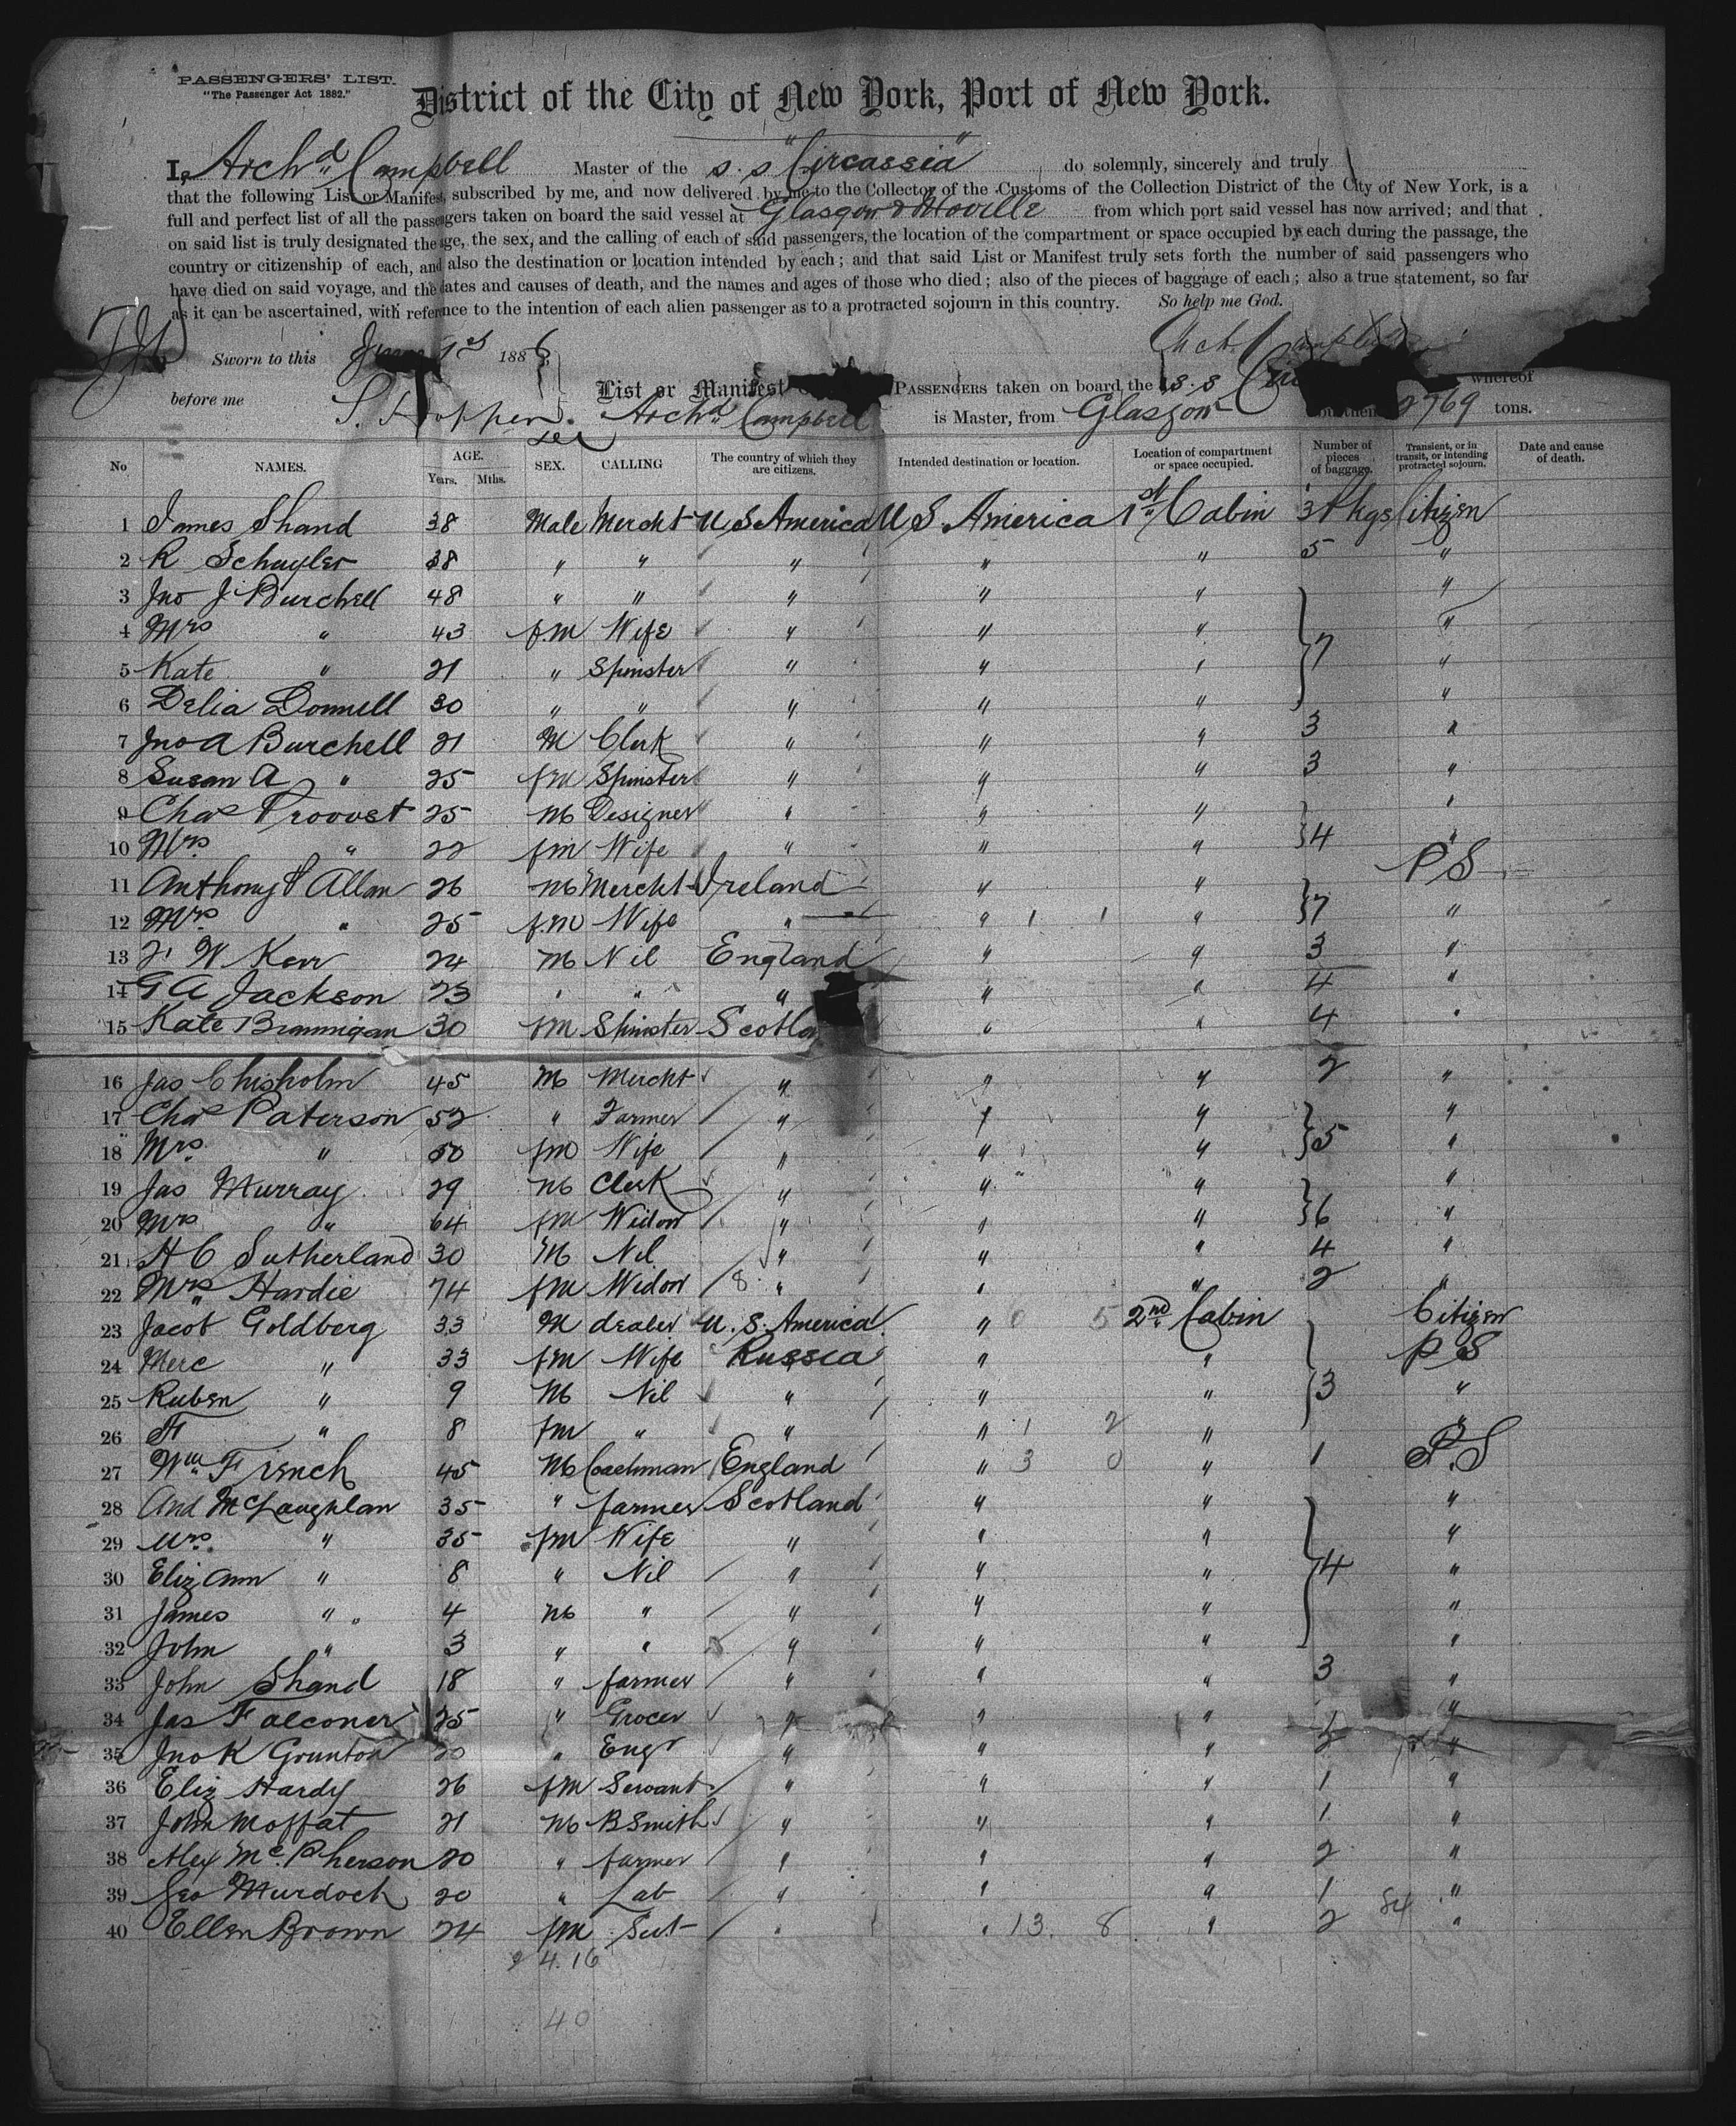 PASSENGERS' LIST.
"The Passenger Act 1882."
District of the City of New York, Port of New York.
I, Archd Campbell Master of the s.s "Circassia" do solemnly, sincerely and truly
that the following List or Manifest, subscribed by me, and now delivered by me to the Collector of the Customs of the Collection District of the City of New York, is a
full and perfect list of all the passengers taken on board the said vessel at Glasgow & Moville from which port said vessel has now arrived; and that
on said list is truly designated the age, the sex, and the calling of each of said passengers, the location of the compartment or space occupied by each during the passage, the
country or citizenship of each, and also the destination or location intended by each; and that said List or Manifest truly sets forth the number of said passengers who
have died on said voyage, and the dates and causes of death, and the names and ages of those who died; also of the pieces of baggage of each; also a true statement, so far
as it can be ascertained, with reference to the intention of each alien passenger as to a protracted sojourn in this country. So help me God.
Sworn to this 1st 1886 Arch Campbell
before me List or Manifest PASSENGERS taken on board the s.s whereof
Archd Campbell is Master, from Glasgow 2769 tons.
No NAMES. AGE. Years. Mths. SEX. CALLING The country of which they are citizens. Intended destination or location. Location of compartment or space occupied. Number of pieces of baggage. Transient, or in transit, or intending protracted sojourn. Date and cause of death.
1 James Shand 38 Male Mercht U S America U S America 1st Cabin 3 Pkgs Citizen
2 R Schuyler 38 " " " " " 5 "
3 Jno J Burchell 48 " " " " " "
4 Mrs " 43 fm Wife " " " "
5 Kate " 21 " Spinster " " " 7 "
6 Delia Donnell 30 " " " " " "
7 Jno A Burchell 21 M Clerk " " " 3 "
8 Susan A " 25 fm Spinster " " " 3 "
9 Chas Provost 25 M Designer " " " "
10 Mrs " 22 fm Wife " " " 4 "
11 Anthony Allan 26 M Mercht Ireland " " P S
12 Mrs " 25 fm Wife " " 1 1 " 7 "
13 W Kerr 24 M Nil England " " 3 "
14 G A Jackson 23 " " " " " 4 "
15 Kate Brannigan 30 fm Spinster Scotla " " 4 "
16 Jas Chisholm 45 M Mercht " " " 2 "
17 Chas Paterson 52 " Farmer " " " "
18 Mrs " 50 fm Wife " " " 5 "
19 Jas Murray 29 M Clerk " " " "
20 Mrs " 64 fm Widow " " " 6 "
21 H C Sutherland 30 M Nil " " " 4 "
22 Mrs Hardie 74 fm Widow 8 " " " 2 "
23 Jacob Goldberg 33 M dealer U. S. America " 0 5 2nd Cabin Citizen
24 Merc " 33 fm Wife Russia " " P S
25 Ruben " 9 M Nil " " " 3 "
26 F " 8 fm " " " 1 2 " "
27 Wm French 45 M Coachman England " 3 0 " 1 P.S
28 And McLaughlan 35 " farmer Scotland " " "
29 Mrs " 35 fm Wife " " " "
30 Eliz Ann " 8 " Nil " " " 4 "
31 James " 4 M " " " " "
32 John " 3 " " " " " "
33 John Shand 18 " farmer " " " 3 "
34 Jas Falconer 25 " Grocer " " " "
35 Jno K Grunton 20 " Engr " " " 2 "
36 Eliz Hardy 26 fm Servant " " " 1 "
37 John Moffat 21 M B Smith " " " 1 "
38 Alex McPherson 20 " farmer " " " 2 "
39 Geo Murdoch 20 " Lab " " " 1 "
40 Ellen Brown 24 fm Sevt " " 13. 8 " 2 "
24.16
40